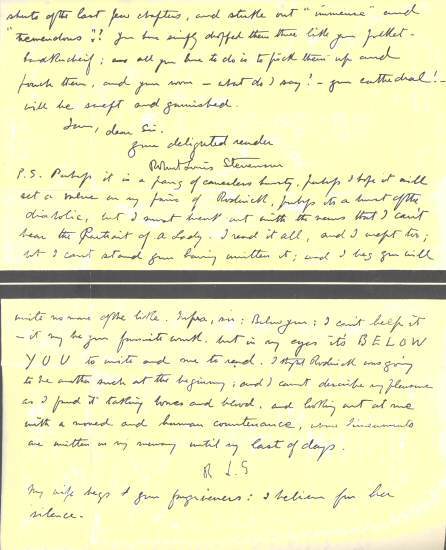 sheets of the last few chapters, and strike out "immense" and
"tremendous"? You have simply dropped them there like your pocket-
handkerchief; all you have to do is to pick them up and
pouch them, and your room – what do I say? – your cathedral! –
will be swept and garnished.
I am, dear Sir,
your delighted reader
Robert Louis Stevenson
P.S. Perhaps it is a pang of causeless honesty, perhaps I hope it will
set a value on my praise of Roderick, perhaps it's a burst of the
diabolic, but I must break out with the news that I can't
bear the Portrait of a Lady. I read it all, and I wept too;
but I can't stand your having written it; and I beg you will
write no more of the like. Infra, sir: Below you: I can't help it
– it may be your favourite work, but in my eyes it's BELOW
YOU to write and me to read. I thought Roderick was going
to be another such at the beginning; and I cannot describe my pleasure
as I found it taking bones and blood, and looking out at me
with a moved and human countenance, whose lineaments
are written in my memory until my last of days.
R L S
My wife begs your forgiveness: I believe for her
silence.